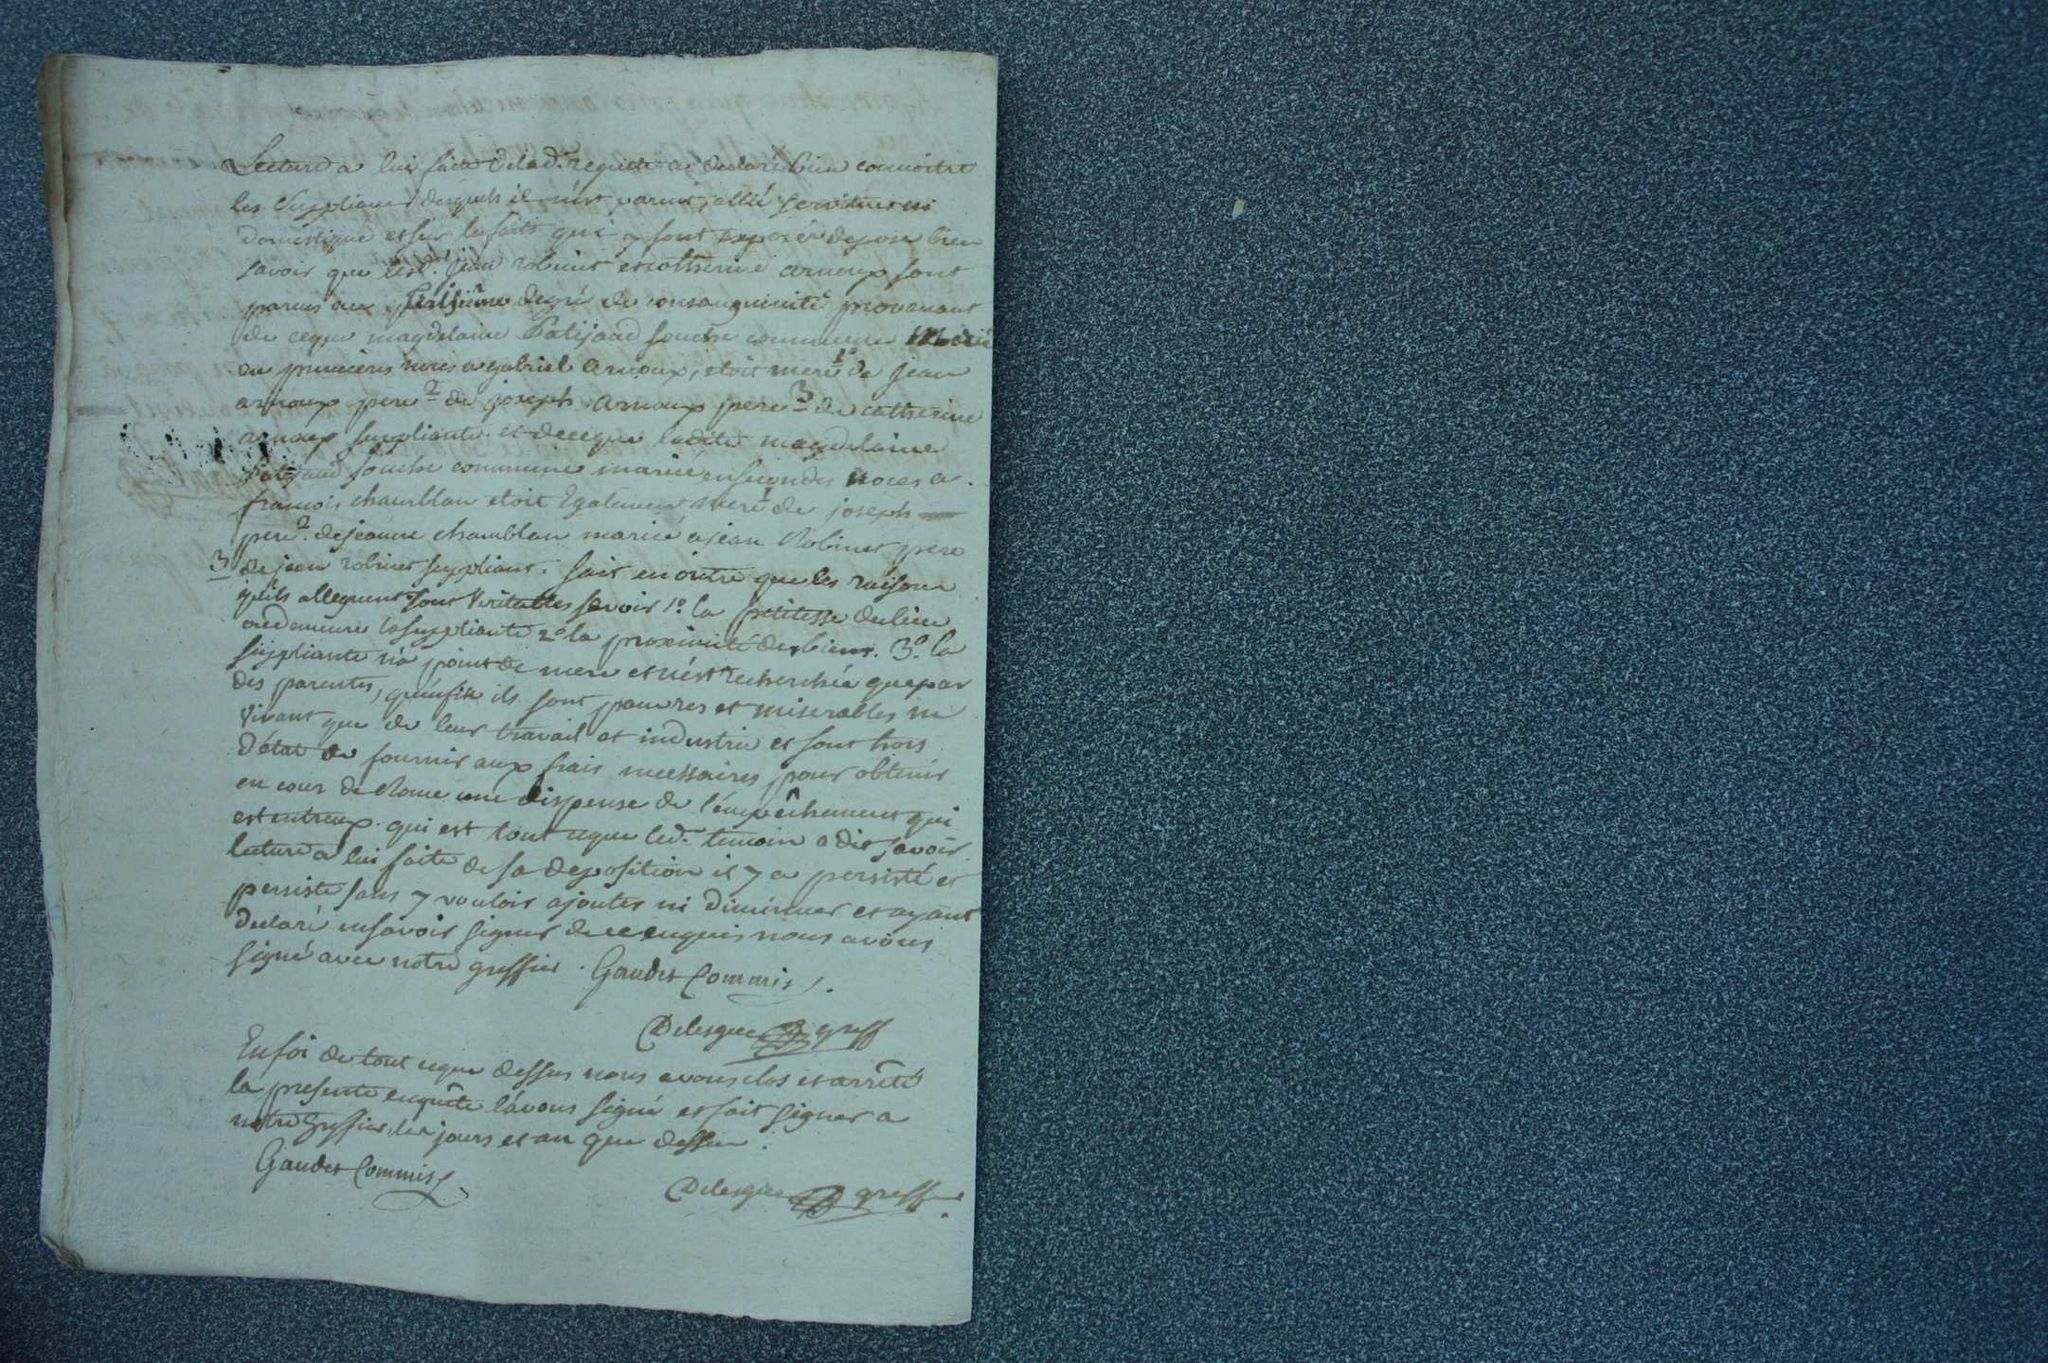 Lecture a lui faite de lad. requete a declaré bien connoitre
les Suppliants desquels il n'est parent, allié serviteur ni
domestique et sur les faits qui y sont exposés depose bien
savoir que lesd. jean robinet et catherine arnoux sont
parens aux troisieme degré de consanguinité provenant
de ceque magdelaine Patijaud souche commune Mariée
en premieres noces a gabriel Arnoux, etoit mere 1º de jean
arnoux pere 2 de joseph Arnoux pere 3 de catherine
arnoux suppliante. et de ceque ladite magdelaine
Patijaud souche commune mariée en secondes noces a
francois chamblan etoit egalement mere 1 de joseph
pere 2 de jeanne chamblan mariée a jean Robinet pere
3 de jean robinet suppliant. sait en outre que les raisons
qu'ils alleguent sont Veritables savoir 1º la petitesse du lieu
ou demeure la suppliante 2º la proximité des biens. 3º. la
suppliante n'a point de mere et n'est recherchée que par
des parents, qu'enfin ils sont pauvres et miserables ne
vivant que de leur travail et industrie et sont hors
d'état de fournir aux frais necessaires pour obtenir
en cour de Rome une dispense de l'empêchement qui
est entreux. qui est tout ceque led. temoin a dit savoir.
lecture a lui faite de sa deposition il y a persisté et
persiste sans y vouloir ajouter ni diminuer et ayant
declaré ne savoir signer de ce enquis nous avons
signé avec notre greffier. Gaudet Commis.
Delesgue greff
En foi de tout ceque dessus nous avons clos et arrêté
la presente enquête l'avons signé et fait signer a
notre Greffier, les jours et an que dessus.
Gaudet Commis
Delesgue greffier